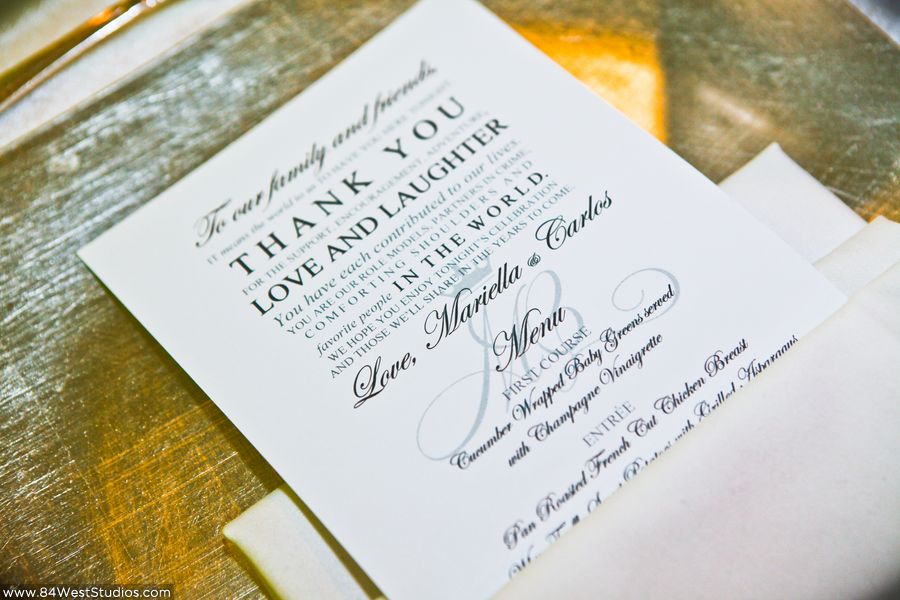 To our family and friends,
IT means the world to us TO HAVE YOU HERE TONIGHT.
THANK YOU
FOR THE SUPPORT, ENCOURAGEMENT, ADVENTURE,
LOVE AND LAUGHTER
You have each contributed to our lives.
YOU ARE OUR ROLE MODELS, PARTNERS IN CRIME,
COMFORTING SHOULDERS AND
favorite people IN THE WORLD.
WE HOPE YOU ENJOY TONIGHT'S CELEBRATION
AND THOSE WE'LL SHARE IN THE YEARS TO COME.
Love, Mariella & Carlos
Menu
FIRST COURSE
Cucumber Wrapped Baby Greens served
with Champagne Vinaigrette
ENTRÉE
Pan Roasted French Cut Chicken Breast
with Grilled Asparagus
www.84WestStudios.com